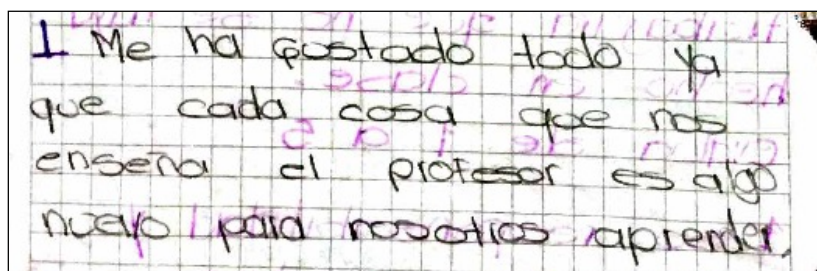 1 Me ha gustado todo ya
que cada cosa que nos
enseña el profesor es algo
nuevo para nosotros aprender.